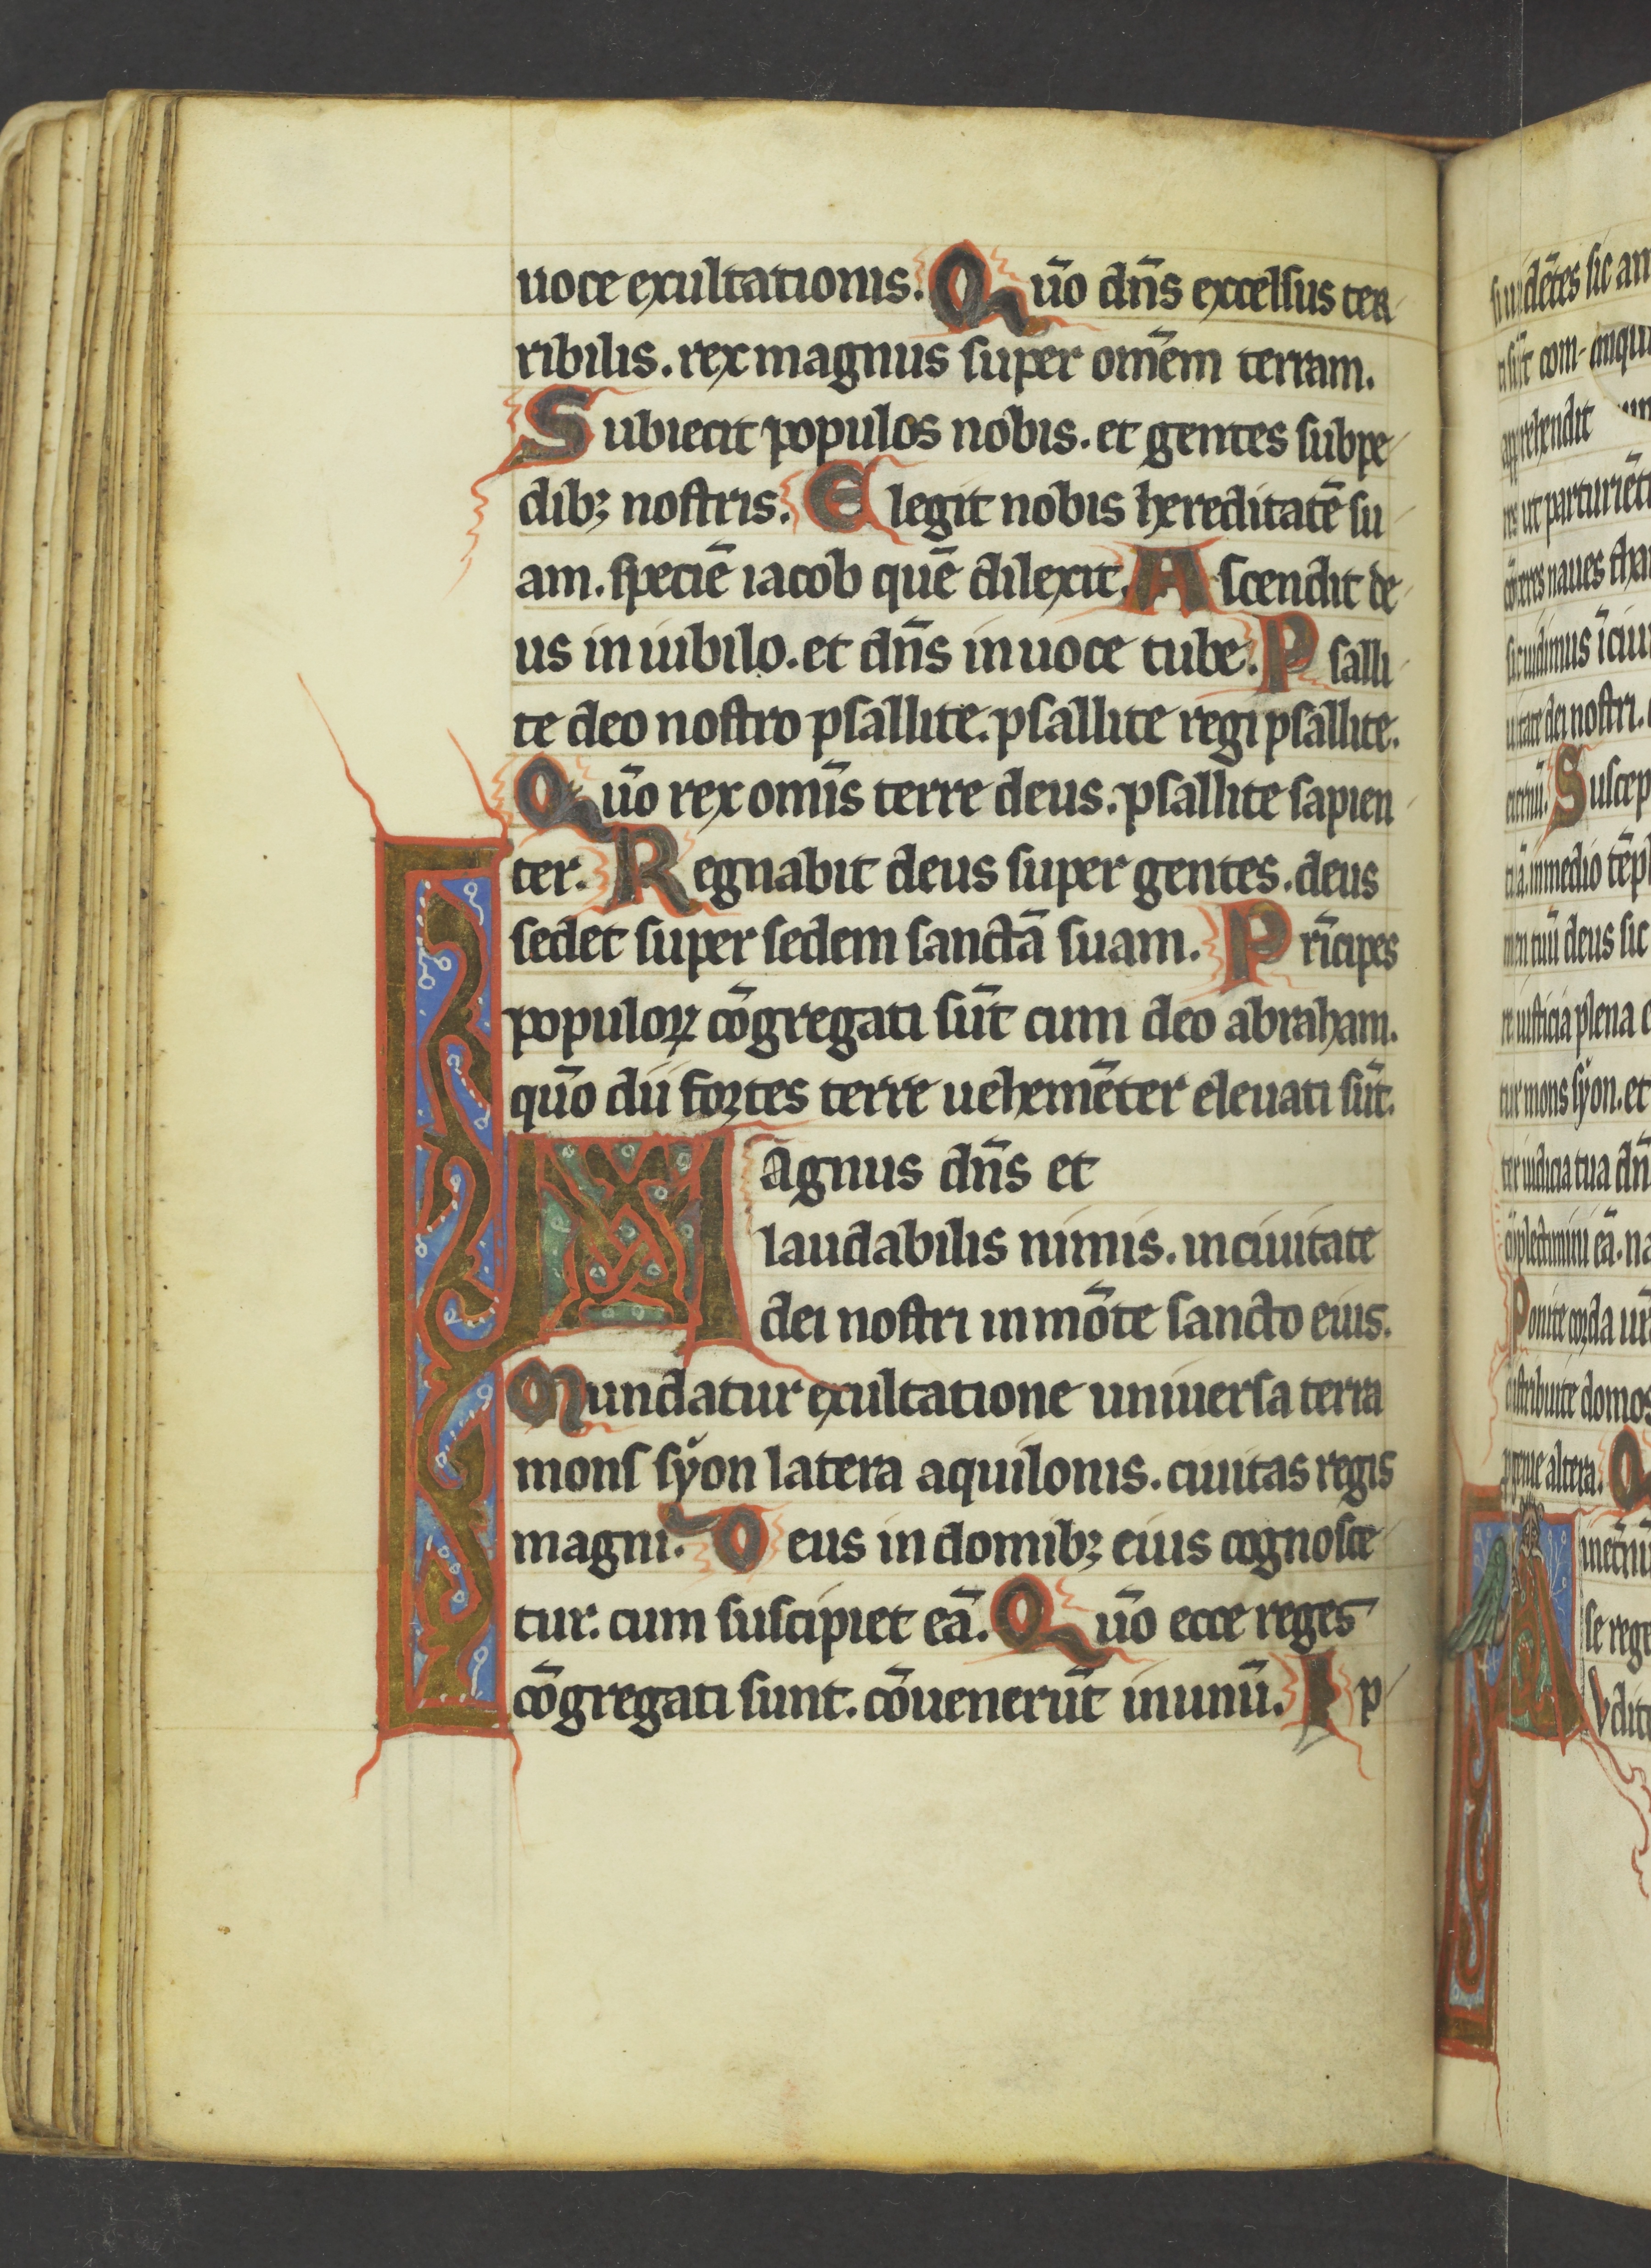 uoce exultationis. Quo̅ dn̅s excelsus ter
ribilis. rex magnus super ome̅m terram.
Subiecit populos nobis. et gentes sub pe
dibꝫ nostris. Elegit nobis hereditate̅ su
am. specie̅ iacob que̅ dilexit. Ascendit de
us in iubilo. et dn̅s in uoce tube. Psalli
te deo nostro psallite. psallite regi psallite.
Quo̅ rex omi̅s terre deus. psallite sapien
ter. Regnabit deus super gentes. deus
sedet super sedem sancta̅ suam. Pri̅cipes
populoꝝ co̅gregati su̅t cum deo abraham.
quo̅ dii fortes terre ueheme̅ter eleuati su̅t.
Magnus dn̅s et
laudabilis nimis. in ciuitate
dei nostri in mo̅te sancto eius.
Mundatur exultatione uniuersa terra
mons syon latera aquilonis. ciuitas regis
magni. Deus in domibꝫ eius cognosce
tur. cum suscipiet ea̅. Quo̅ ecce reges
co̅gregati sunt. co̅ueneru̅t inunu̅. Ip
de̅tes sic
su̅t com
apprehendit
ut parturie̅t
naues
uidimus i̅
dei nostri.
Suscep
in medio te̅pl
tuu̅ deus sic
iusticia plena
mons syon. et
iudicia tua dn̅
ea̅.
Ponite corda
distribuite domos
altera. Q
se rege